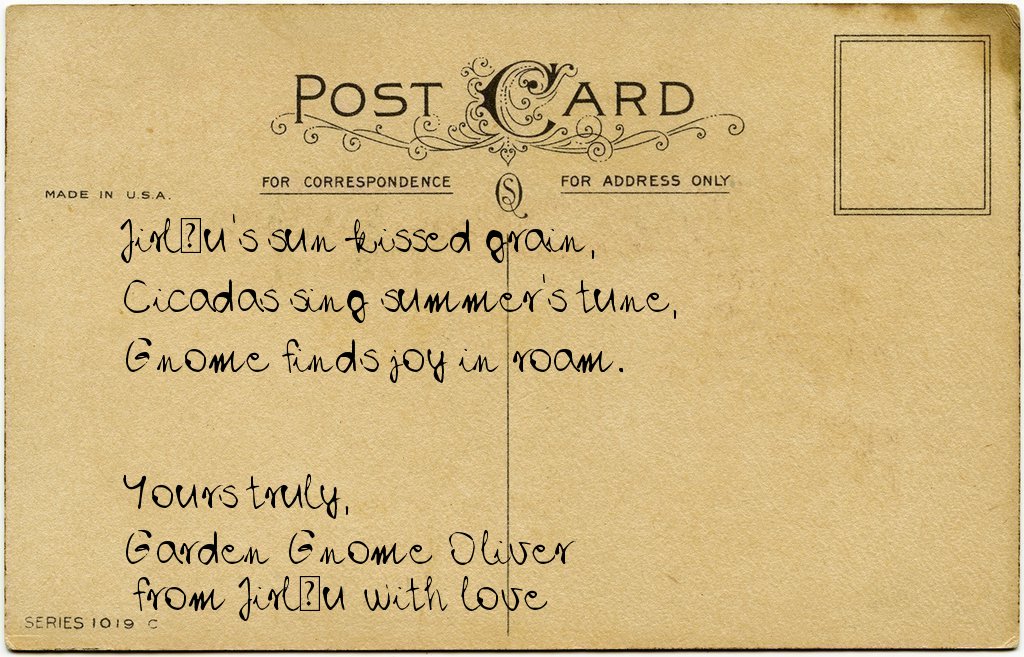 POST CARD
FOR CORRESPONDENCE
FOR ADDRESS ONLY
MADE IN U.S.A.
's sun kissed grain,
Cicadas sing summer's tune,
Gnome finds joy in roam.
Yours truly,
Garden Gnome Oliver
from with love
SERIES 1019 C